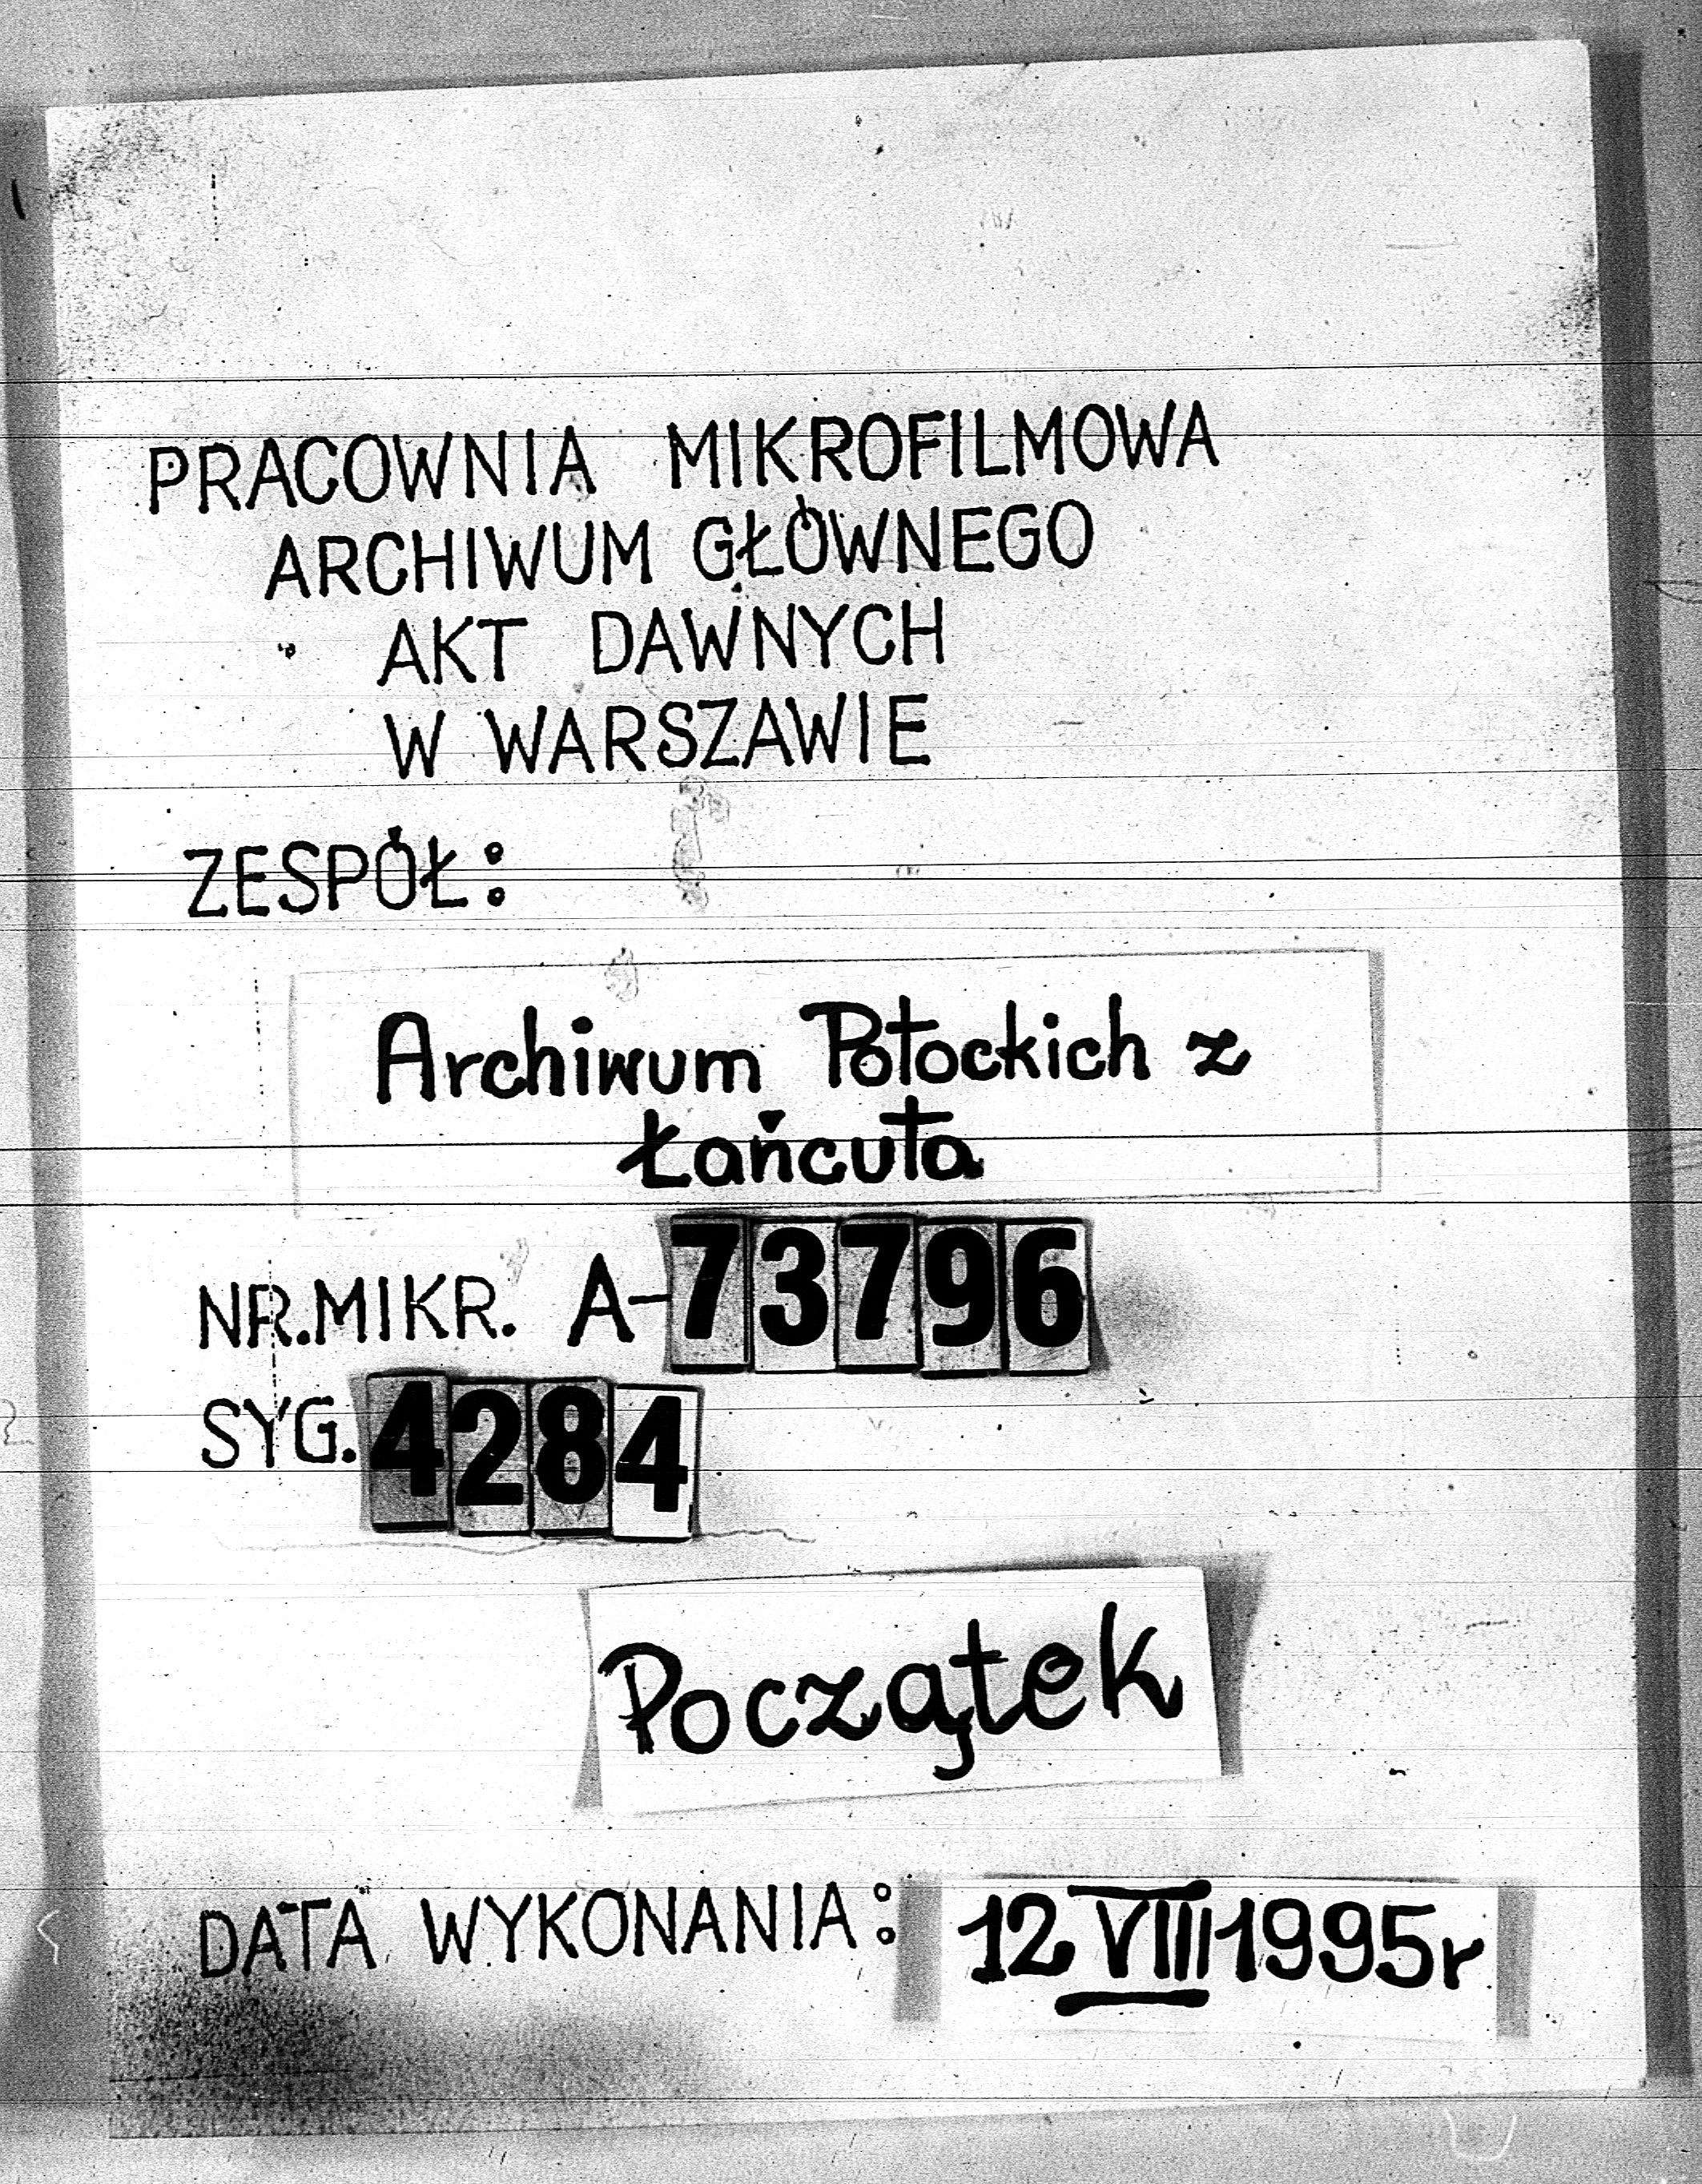 PRACOWNIA MIKROFILMOWA
ARCHIWUM GŁÓWNEGO
AKT DAWNYCH
W WARSZAWIE
ZESPÓŁ:
Archiwum Potockich z
Łańcuta
NR.MIKR. A-73796
SYG. 4284
Początek
DATA WYKONANIA: 12 VIII 1995r